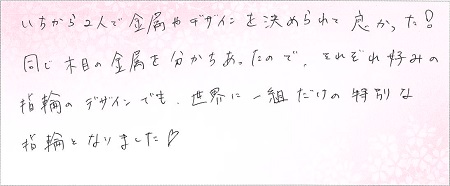 いちから2人で金属やデザインを決められて良かった!
同じ木目の金属を分かちあったので、それぞれ好みの
指輪のデザインでも、世界に一組だけの特別な
指輪となりました♡